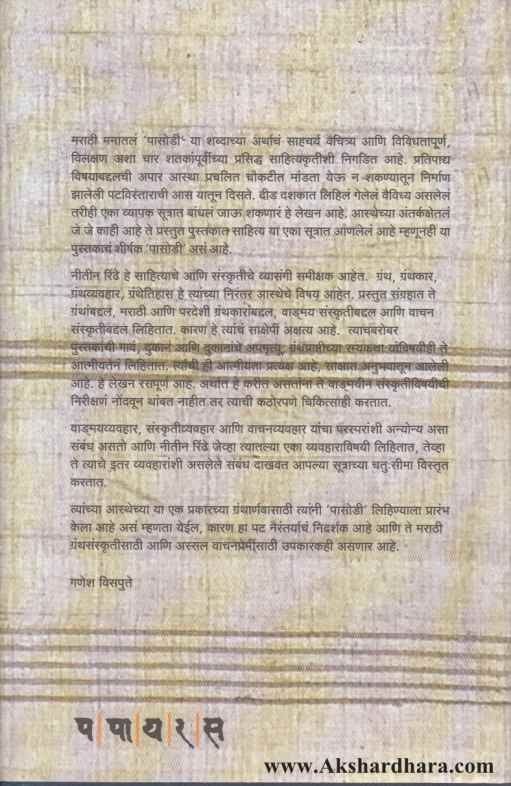 मराठी मनातलं 'पासोडी' या शब्दाच्या अर्थाचं साहचर्य वैचित्र्य आणि विविधतापूर्ण,
विलक्षण अशा चार शतकांपूर्वीच्या प्रसिद्ध साहित्यकृतीशी निगडित आहे. प्रतिपाद्य
विषयाबद्दलची अपार आस्था प्रचलित चौकटीत मांडता येऊ न शकण्यातून निर्माण
झालेली पटविस्ताराची आस यातून दिसते. दीड दशकात लिहिलं गेलेलं वैविध्य असलेलं
तरीही एका व्यापक सूत्रात बांधलं जाऊ शकणारं हे लेखन आहे. आस्थेच्या अंतर्कक्षेतलं
जे जे काही आहे ते प्रस्तुत पुस्तकात साहित्य या एका सूत्रात आणलेलं आहे म्हणूनही या
पुस्तकाचं शीर्षक 'पासोडी' असं आहे.
नीतीन रिंढे हे साहित्याचे आणि संस्कृतीचे व्यासंगी समीक्षक आहेत. ग्रंथ, ग्रंथकार,
ग्रंथव्यवहार, ग्रंथेतिहास हे त्यांच्या निरंतर आस्थेचे विषय आहेत. प्रस्तुत संग्रहात ते
ग्रंथांबद्दल, मराठी आणि परदेशी ग्रंथकारांबद्दल, वाङ्मय संस्कृतीबद्दल आणि वाचन
संस्कृतीबद्दल लिहितात. कारण हे त्यांचं साक्षेपी अक्षत्य आहे. त्याचबरोबर
पुस्तकांची गावं, दुकानं आणि दुकानांचे अपमृत्यू, ग्रंथप्राप्तीच्या रम्यकथा यांविषयीही ते
आत्मीयतेनं लिहितात. त्यांची ही आत्मीयता प्रत्यक्ष आहे, साक्षात अनुभवातून आलेली
आहे. हे लेखन रसपूर्ण आहे. अर्थात हे करीत असतांना ते वाङ्मयीन संस्कृतीविषयीची
निरीक्षणं नोंदवून थांबत नाहीत तर त्याची कठोरपणे चिकित्साही करतात.
वाङ्मयव्यवहार, संस्कृतीव्यवहार आणि वाचनव्यवहार यांचा परस्परांशी अन्योन्य असा
संबंध असतो आणि नीतीन रिंढे जेव्हा त्यातल्या एका व्यवहाराविषयी लिहितात, तेव्हा
ते त्याचे इतर व्यवहारांशी असलेले संबंध दाखवत आपल्या सूत्राच्या चतु:सीमा विस्तृत
करतात.
त्यांच्या आस्थेच्या या एक प्रकारच्या ग्रंथार्णवासाठी त्यांनी 'पासोडी' लिहिण्याला प्रारंभ
केला आहे असं म्हणता येईल, कारण हा पट नैरंतर्याचं निदर्शक आहे आणि ते मराठी
ग्रंथसंस्कृतीसाठी आणि अस्सल वाचनप्रेमींसाठी उपकारकही असणार आहे.
गणेश विसपुते
प|पा|य|र|स
www.Akshardhara.com